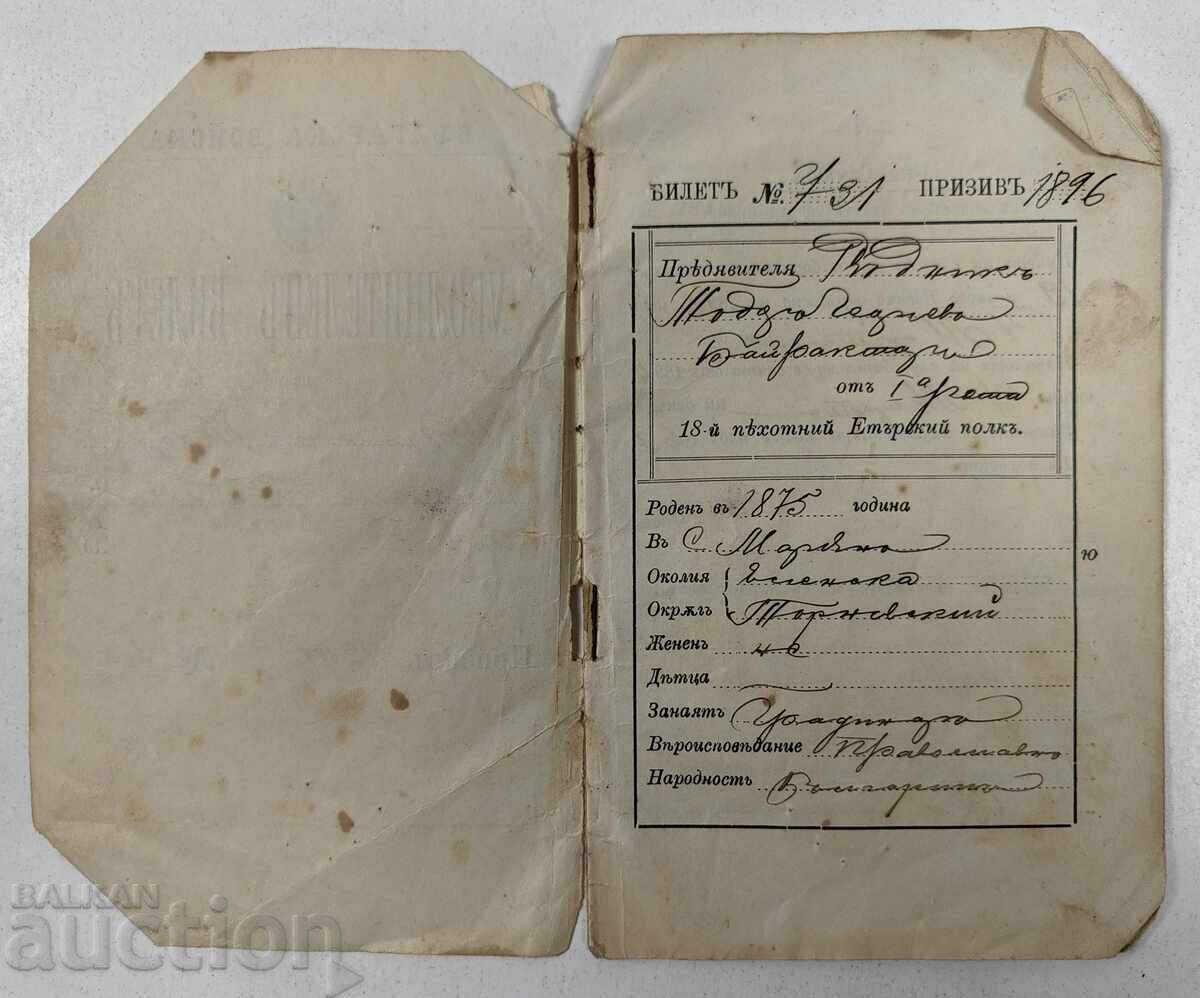 БИЛЕТЪ №. 731 ПРИЗИВЪ 1896
Прѣдявителя Рѣдникъ
Тодоръ
Байрактаръ
отъ Iа рота
18-й пѣхотний Етърский полкъ.
Роденъ въ 1875 година
Въ с Марѣно
Околия Еленска
Окрѫгъ Търновский
Жененъ не
Дѣтца
Занаятъ Градинарь
Вѣроисповѣдание Православно
Народность Българинъ
ю
BALKAN
auction